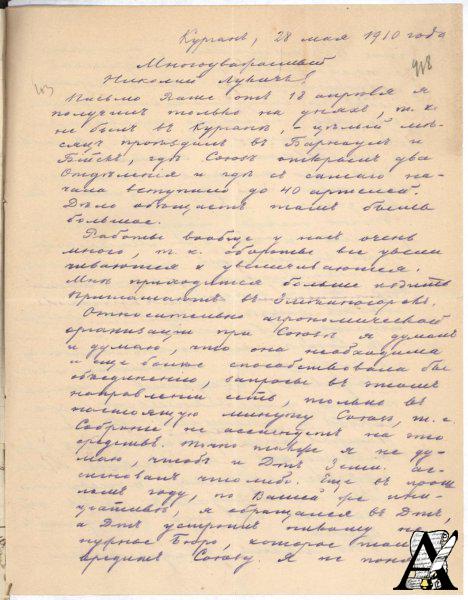 Курганъ, 28 мая 1910 года
918
Многоуважаемый
Николай Лукичъ!
Письмо Ваше отъ 18 апреля я
получилъ только на дняхъ, т. к.
не былъ въ Курганѣ, - цѣлый мѣ-
сяцъ проѣздилъ въ Барнаулъ и
Бійскъ, гдѣ Союзъ открылъ два
Отдѣленія и гдѣ съ самаго на-
чала вступило до 40 артелей.
Дѣло обѣщаетъ тамъ быть
большое.
Работы вообще у насъ очень
много, т. к. обороты все увели
чиваются и увеличиваются.
Мнѣ приходится больше ѣздить
Приглашаютъ въ Змѣиногорскъ.
Относительно агрономической
организаціи при Союзѣ я думалъ
и думаю, что она необходима
и еще болѣе способствовала бы
объединенію, запросы въ этомъ
направленіи есть, только въ
настоящую минуту Союзъ, т. е.
Собраніе не ассигнуетъ на это
средствъ. Точно также я не ду-
маю, чтобы и Д-тъ Земл. ас-
сигновалъ что либо. Еще въ прош
ломъ году, по Вашей же ини-
ціативѣ, я обращался въ Д-тъ,
а Д-тъ устроилъ
Бюро, которое
Союзу. Я не
А